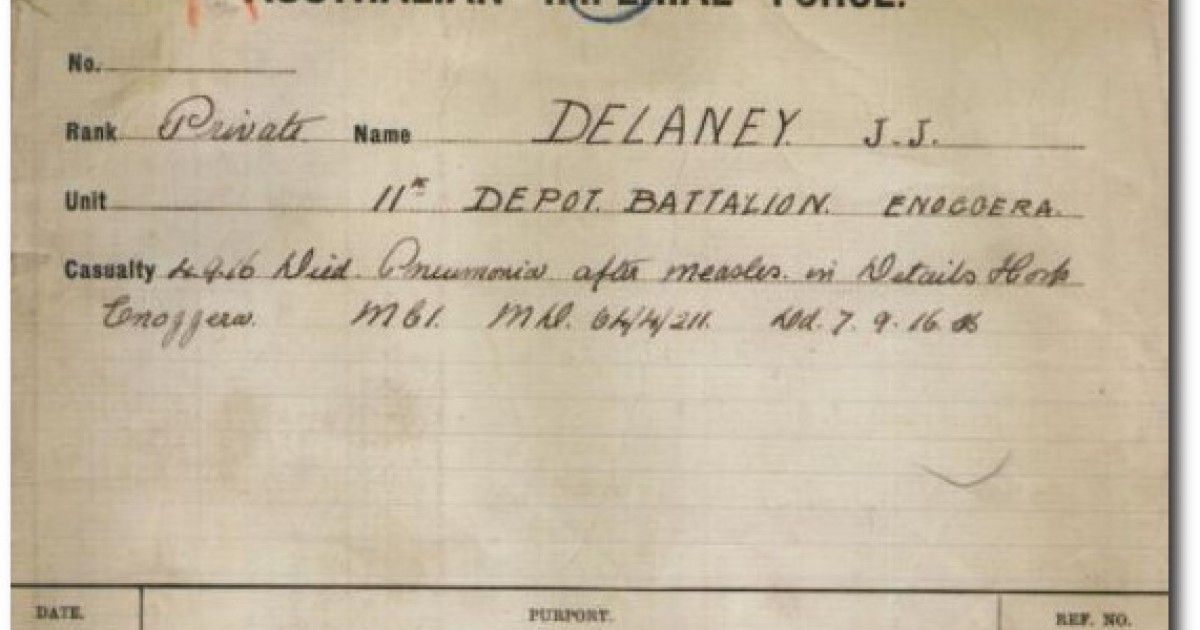 AUSTRALIAN IMPERIAL FORCE.
No.
Rank Private Name DELANEY. J.J.
Unit 11th DEPOT. BATTALION. ENOGGERA.
Casualty 4.9.16 Died. Pneumonia after measles. in Details Hosp
Enoggera. Dd. 7. 9. 16.
DATE. PURPORT. REF. NO.